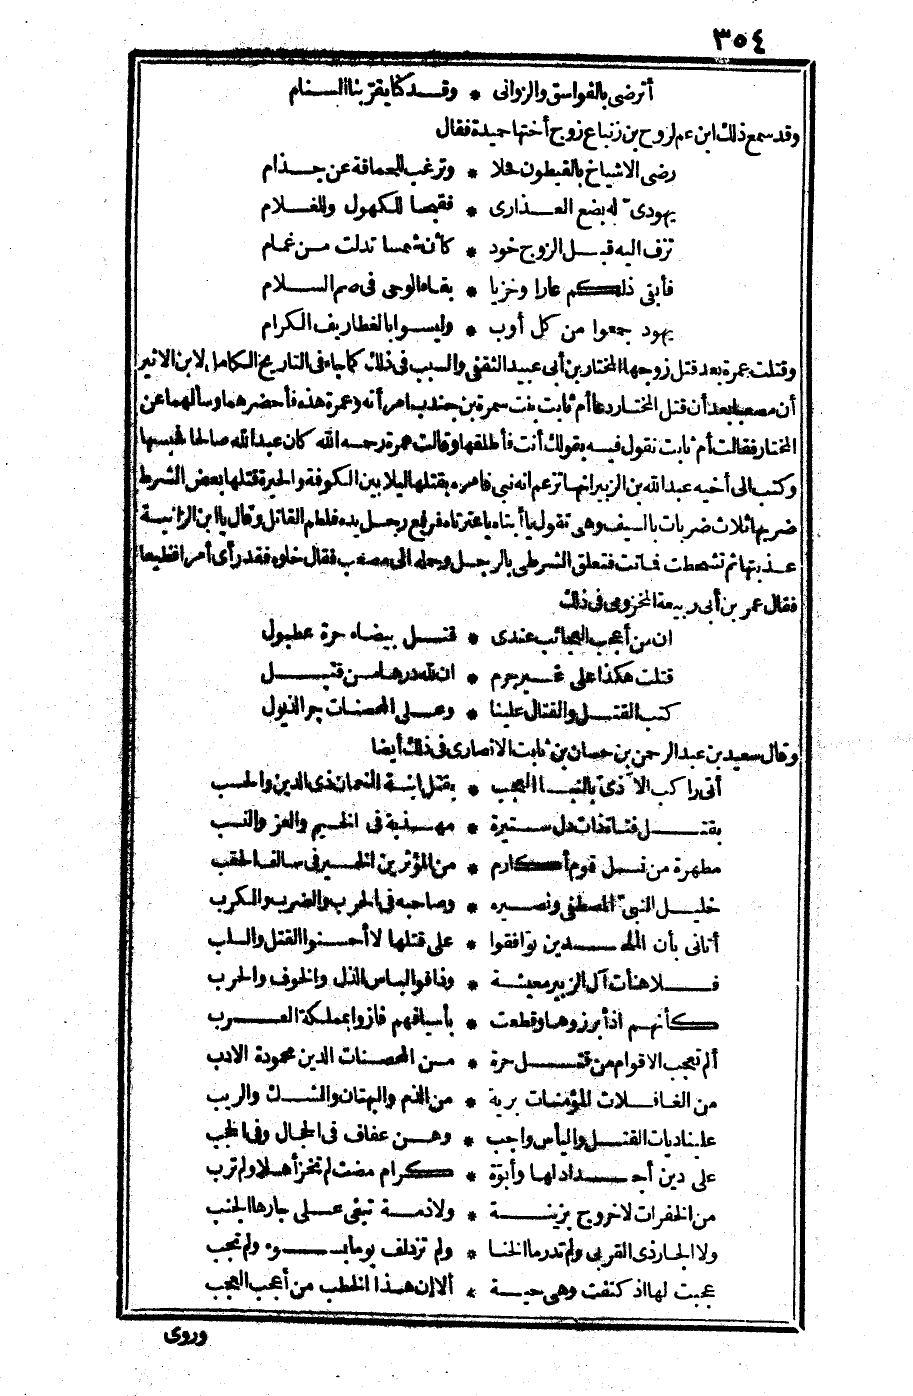 ٣٥٤
أترضى بالفواسق والزوانى * وقد كنا يقر بنا السنام
وقد سمع ذلك ابن عم لروح بن زنباع زوج أختها حميدة فقال
رضى الاشياخ بالقيطون فحلا * وترغب للعماقة عن جذام
يهودى له بضع العذارى * فقبحا للكهول وللغلام
تزف اليه قبل الزوج خود * كأن شمسا تدلت من غمام
فأبقى ذلكم عارا وخزيا * بقاء الوحى فى صم السلام
يهود جمعوا من كل أوب * وليسوا بالغطاريف الكرام
وقتلت عمرة بعد قتل زوجها المختار بن أبى عبيد الثقفى والسبب فى ذلك كما جاء فى التاريخ الكامل لابن الاثير
أن مصعبا بعد أن قتل المختار دعا أم ثابت بنت سمرة بن جندب امرأته وعمرة هذه فأحضرهما وسألهما عن
المختار فقالت أم ثابت نقول فيه بقولك أنت فأطلقها وقالت عمرة رحمه الله كان عبدا لله صالحا فحبسها
وكتب الى أخيه عبد الله بن الزبير انها تزعم انه نبى فامره بقتلها ليلا بين الكوفة والحيرة قتلها بعض الشرط
ضربها ثلاث ضربات بالسيف وهى تقول يا أبتاه يا عترتاه فرفع رجل يده فلطم القاتل وقال يا ابن الزانية
عذبتها ثم تشحطت فماتت فتعلق الشرطى بالرجل وحمله الى مصعب فقال خلوه فقد رأى أمرا فظيعا
فقال عمر بن أبى ربيعة المخزومى فى ذلك
ان من أعجب العجائب عندى * قتل بيضاء حرة عطبول
قتلت هكذا على غير جرم * ان لله درها من قتيل
كتب القتل والقتال علينا * وعلى المحصنات جر الذيول
وقال سعيد بن عبد الرحمن بن حسان بن ثابت الانصارى فى ذلك أيضا
أتى راكب الاذى بالنبا العجب * بقتل ابنة النعمان ذى الدين والحسب
بقتل فتاة ذات دل ستيرة * مهذبة فى الخيم والعز والنسب
مطهرة من نسل قوم أكارم * من المؤثرين الخير فى سالف الحقب
خليل النبى المصطفى ونصيره * وصاحبه فى الحرب والضرب والكرب
أتانى بأن الملحدين توافقوا * على قتلها لا أحسنوا القتل والسلب
فلا هنأت آل الزبير معيشة * وذاقوا لباس الذل والخوف والحرب
كأنهم اذ أبرزوها وقطعت * بأسيافهم فازوا بمملكة العرب
ألم تعجب الاقوام من قتل حرة * من المحصنات الدين محمودة الادب
من الغافلات المؤمنات برية * من الذم والبهتان والشك والريب
علينا ديات القتل والبأس واجب * وهن عفاف فى الحجال وفى الحجب
على دين أجداد لها وأبوة * كرام مضت لم تخز أهلا ولم ترب
من الخفرات لا خروج بزينة * ولا ذمة تبقى على جارها الجنب
ولا الجار ذى القربى ولم تدر ما الخنا * ولم تزدلف يوما بسوء ولم تجب
عجبت لها اذ كتفت وهى حية * ألا ان هذا الخطب من أعجب العجب
وروى